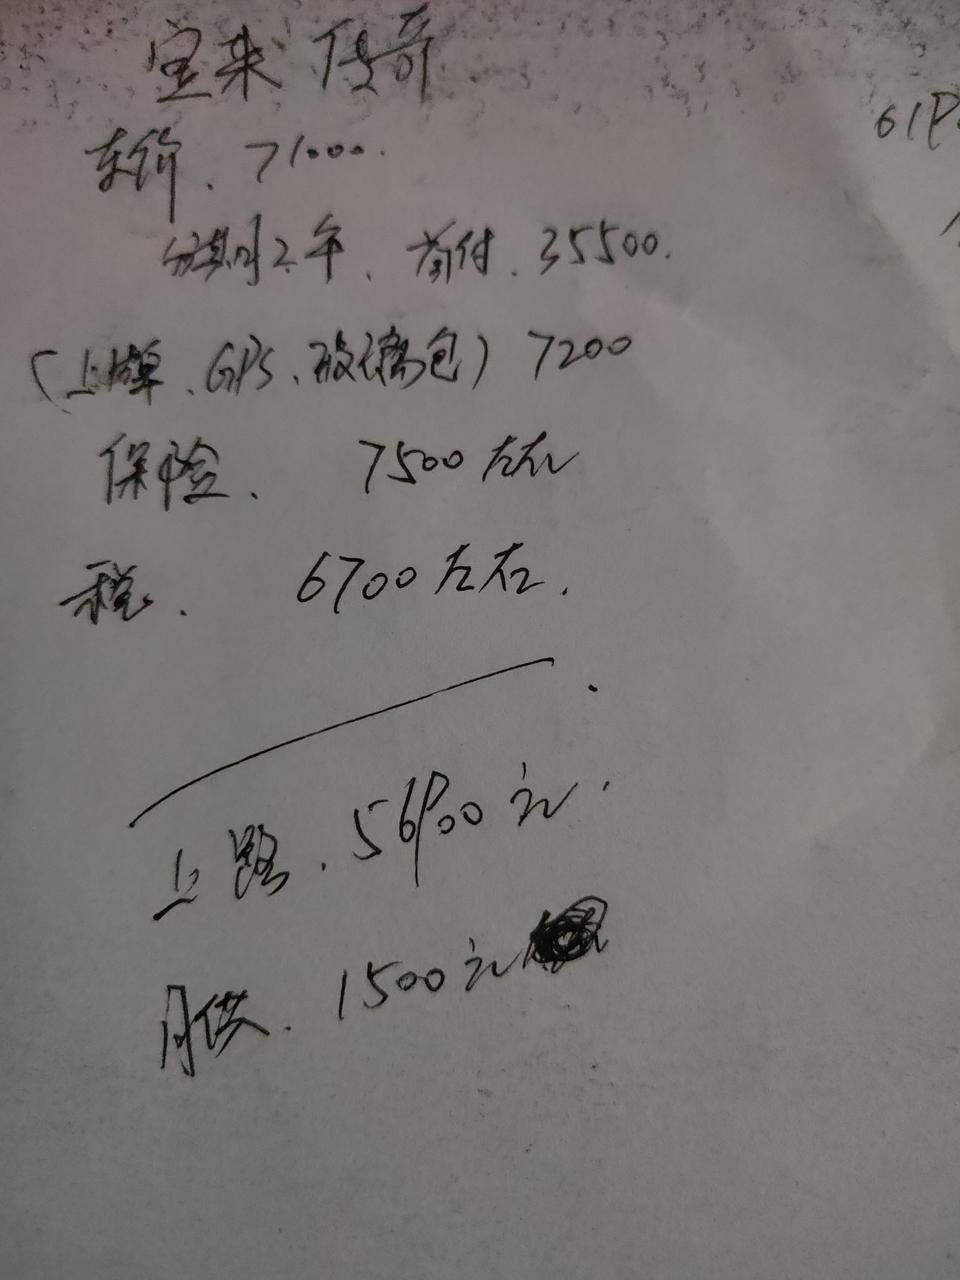 宝来 传奇
61P
车价. 71000.
分期2年. 首付. 35500.
(上牌. GPS. 玻璃包) 7200
保险. 7500左右
税. 6700左右.
上路. 56900元.
月供. 1500元